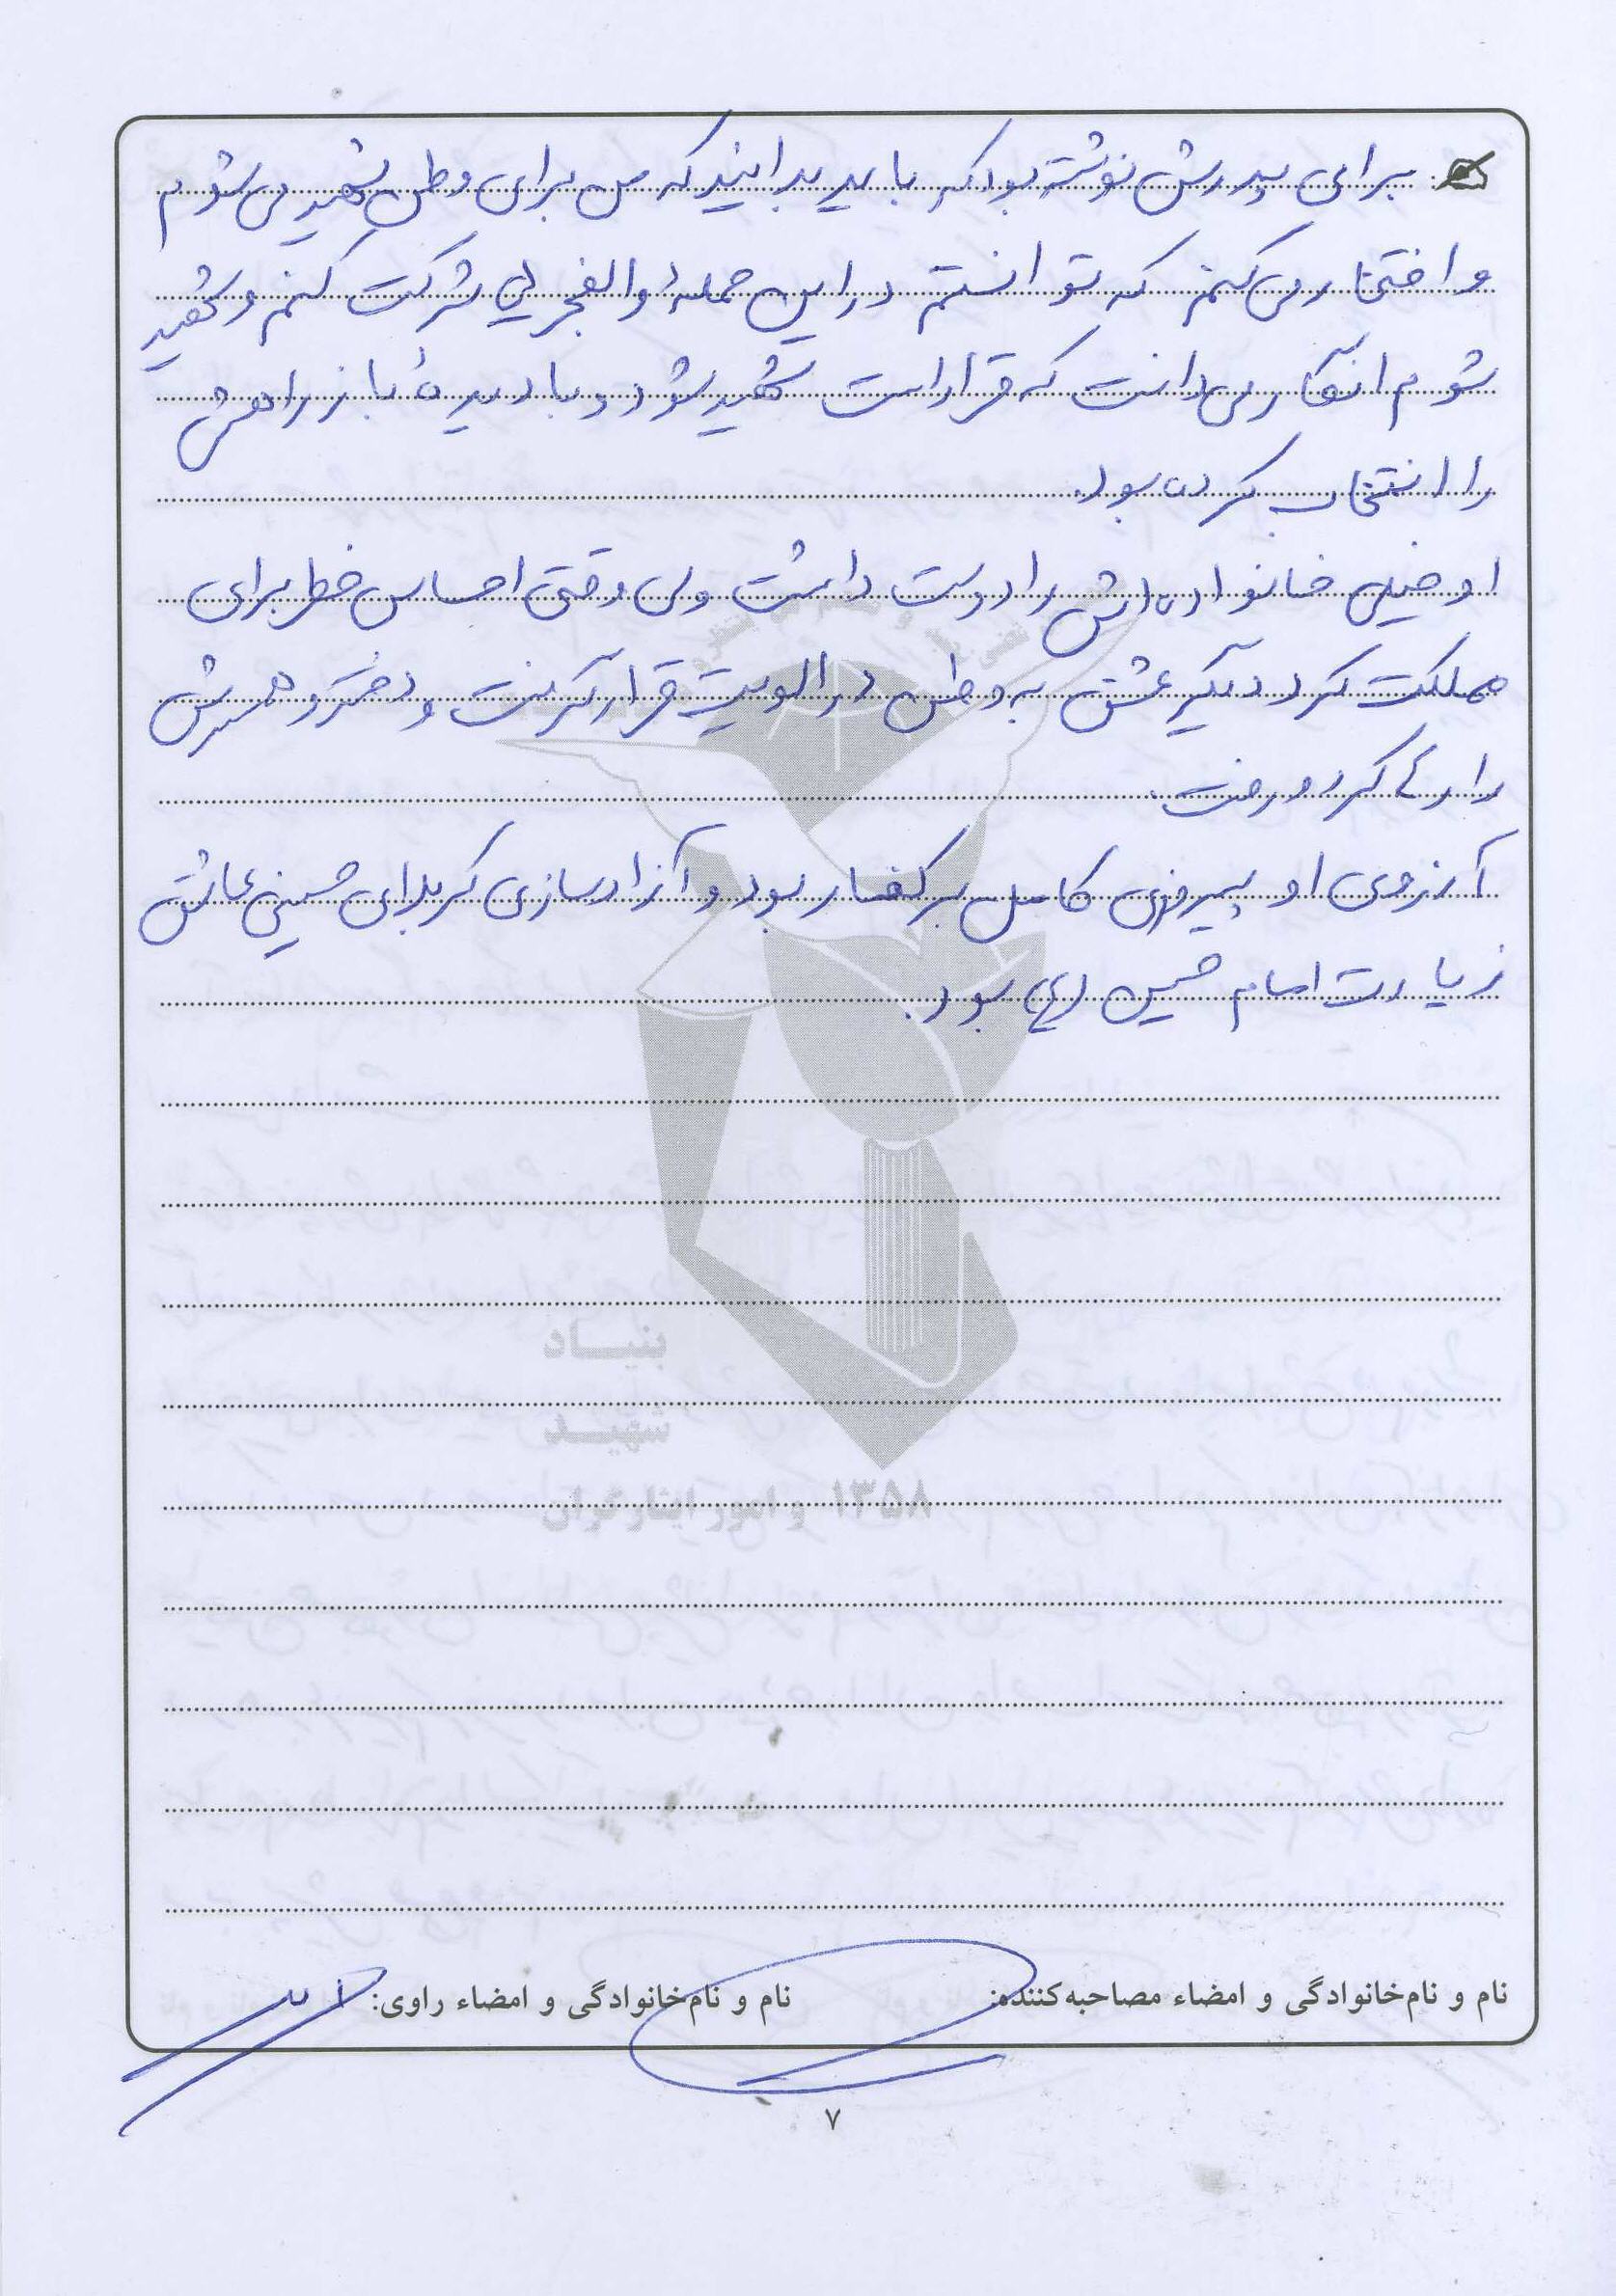 برای پدرش نوشته بود که باید بدانید که من برای وطن شهید می شوم
و افتخار می کنم که توانستم در این حملهٔ والفجر شرکت کنم و شهید
شوم انگار می دانست که قرار است شهید شود و با دیدهٔ باز راهش
را انتخاب کرده بود.
او خیلی خانواده اش را دوست داشت ولی وقتی احساس خطر برای
مملکت کرد دیگر عشق به وطن در الویت قرار گرفت و دختر و همسرش
را رها کرد و رفت.
آرزوی او پیروزی کامل بر کفار بود و آزادسازی کربلای حسینی عاشق
زیارت امام حسین (ع) بود.
بنیاد
شهید
و امور ایثارگران ۱۳۵۸
نام و نام‌خانوادگی و امضاء مصاحبه‌کننده: نام و نام‌خانوادگی و امضاء راوی:
۷